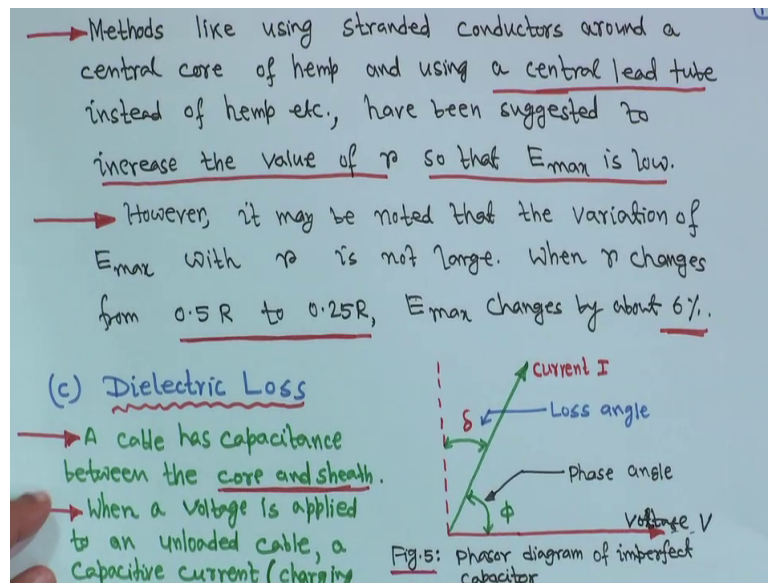 Methods like using stranded conductors around a
central core of hemp and using a central lead tube
instead of hemp etc., have been suggested to
increase the value of r so that Emax is low.
However, it may be noted that the variation of
Emax with r is not large. When r changes
from 0.5R to 0.25R, Emax changes by about 6%.
(c) Dielectric Loss
A cable has capacitance
between the core and sheath.
When a voltage is applied
to an unloaded cable, a
capacitive current (charging
current I
δ
Loss angle
Phase angle
φ
Voltage V
Fig.5: Phasor diagram of imperfect
capacitor